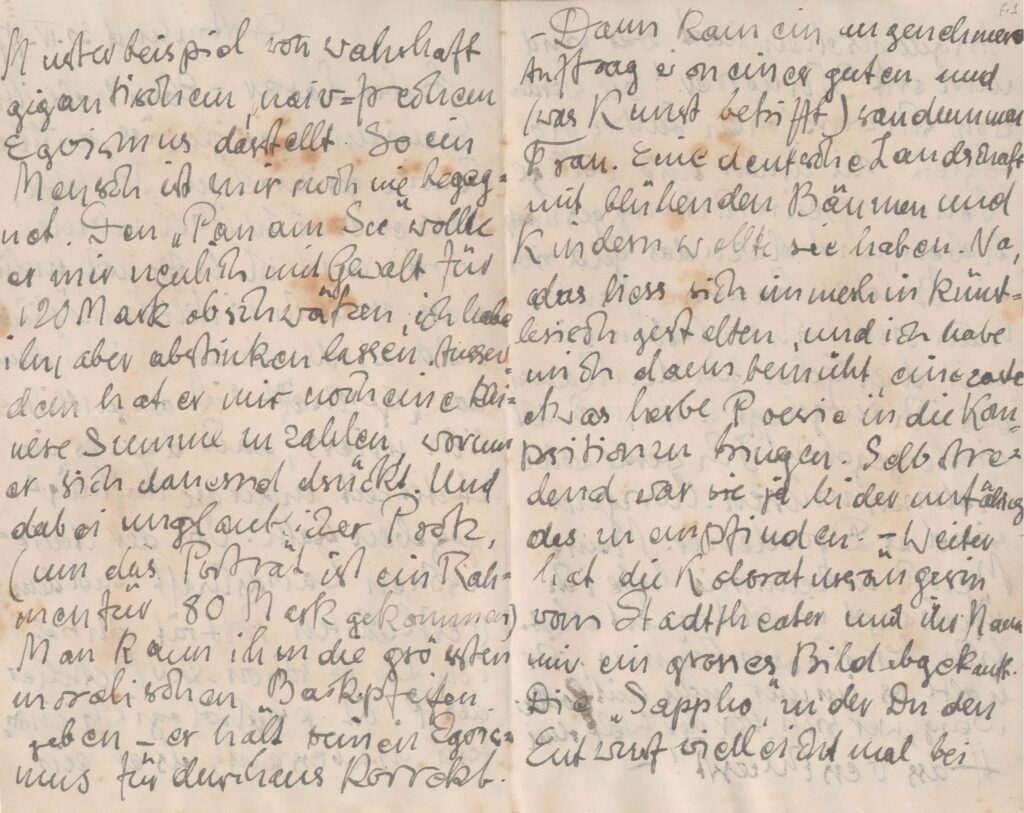 Musterbeispiel von wahrhaft
gigantischem, naiv=frechem
Egoismus darstellt. So ein
Mensch ist mir noch nie begeg=
net. Den „Pan am See" wollte
er mir neulich mit Gewalt für
120 Mark abschwätzen, ich habe
ihn aber abstinken lassen. Ausser-
dem hat er mir noch eine klei=
nere Summe zu zahlen, worum
er sich dauernd drückt. Und
dabei unglaublicher Protz,
(um das Porträt ist ein Rah=
men für 80 Mark gekommen)
Man kann ihm die grössten
moralischen Backpfeifen
geben – er hält seinen Egois=
mus für durchaus korrekt.
f.1
– Dann kam ein angenehmerer
Auftrag von einer guten und
(was Kunst betrifft)
Frau. Eine deutsche Landschaft
mit blühenden Bäumen und
Kindern wollte sie haben. Na,
das liess sich immerhin künst=
lerisch gestalten, und ich habe
mich dann bemüht, eine zarte
etwas herbe Poesie in die Kom-
position zu bringen. Selbstre=
dend war sie ja leider unfähig
das zu empfinden. – Weiter
hat die Koloratursängerin
vom Stadttheater und ihr Mann
mir ein grosses Bild abgekauft.
Die „Sappho", zu der Du den
Entwurf vielleicht mal bei